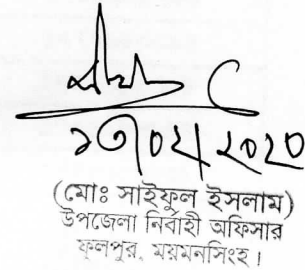 ১৩/০২/২০২০
(মোঃ সাইফুল ইসলাম)
উপজেলা নির্বাহী অফিসার
ফুলপুর, ময়মনসিংহ।